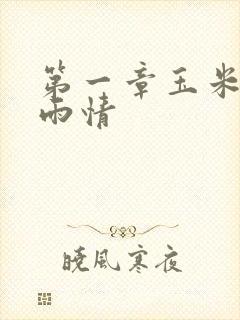 第一章玉米
雨情
晓风寒夜